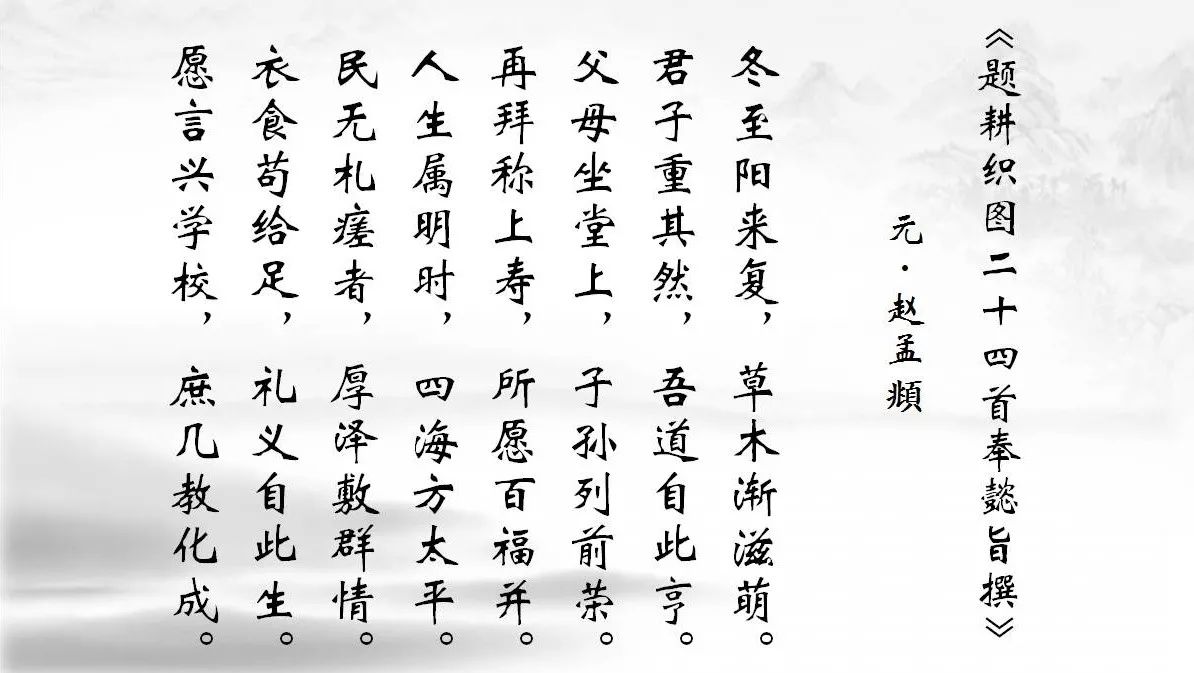 《题耕织图二十四首奉懿旨撰》
元·赵孟頫
冬至阳来复，草木渐滋萌。
君子重其然，吾道自此亨。
父母坐堂上，子孙列前荣。
再拜称上寿，所愿百福并。
人生属明时，四海方太平。
民无札瘥者，厚泽敷群情。
衣食苟给足，礼义自此生。
愿言兴学校，庶几教化成。